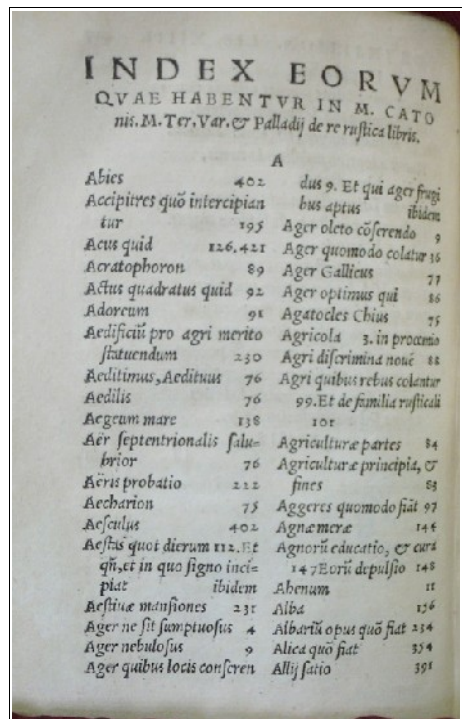 INDEX EORVM
QVAE HABENTVR IN M. CATO
nis. M. Ter. Var. & Palladij de re rustica libris.
A
Abies 402
Accipitres quō intercipian
tur 195
Acus quid 126.421
Acratophoron 89
Actus quadratus quid 92
Adoreum 91
Aedificiū pro agri merito
statuendum 230
Aeditimus, Aedituus 76
Aedilis 76
Aegeum mare 138
Aër septentrionalis salu-
brior 76
Aëris probatio 222
Aecharion 75
Aesculus 402
Aestas quot dierum 112. Et
qñ, et in quo signo inci-
piat ibidem
Aestiuæ mansiones 231
Ager ne sit sumptuosus 4
Ager nebulosus 9
Ager quibus locis conseren
dus 9. Et qui ager frugi
bus aptus ibidem
Ager oleto cōserendo 9
Ager quomodo colatur 36
Ager Gallicus 77
Ager optimus qui 86
Agatocles Chius 75
Agricola 3. in proœmio
Agri discrimina nouē 82
Agri quibus rebus colantur
99. Et de familia rusticali
101
Agriculturæ partes 84
Agriculturæ principia, &
fines 83
Aggeres quomodo fiāt 97
Agnæ meræ 144
Agnorū educatio, & cura
147 Eorū depulsio 148
Ahenum 11
Alba 156
Albariū opus quō fiat 234
Alica quō fiat 354
Allij satio 391